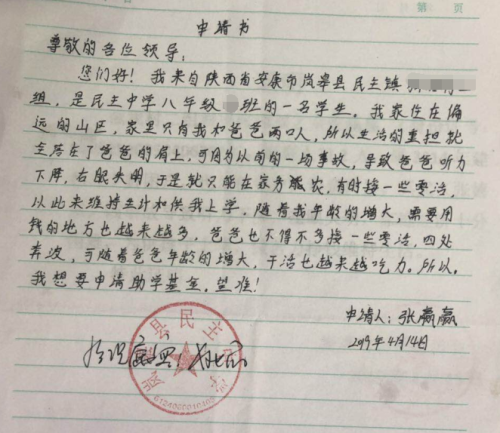 第 页
申请书
尊敬的各位领导：
您们好！我来自陕西省安康市岚皋县民主镇
组，是民主中学八年级 班的一名学生。我家住在偏
远的山区，家里只有我和爸爸两口人，所以生活的重担就
全落在了爸爸的肩上，可因为以前的一场事故，导致爸爸听力
下降，右眼失明，于是就只能在家务农，有时接一些零活，
以此来维持生计和供我上学，随着我年龄的增大，需要用
钱的地方也越来越多，爸爸也不得不多接一些零活，四处
奔波，可随着爸爸年龄的增大，干活也越来越吃力。所以，
我想要申请助学基金，望准！
申请人：张赢赢
2019年4月14日
岚皋县民主
情况属实